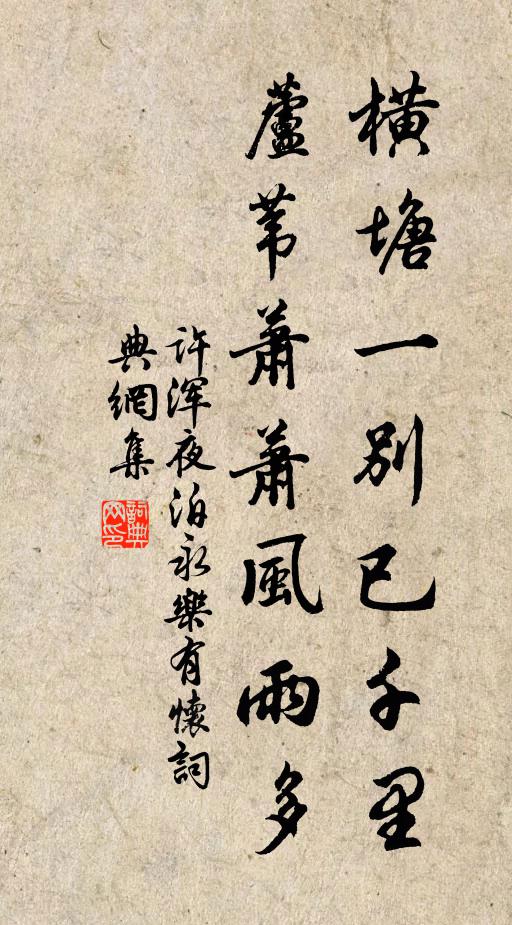 橫塘一別已千里
蘆葦蕭蕭風雨多
許浑夜泊永樂有懷詞
典網集
詞典网印